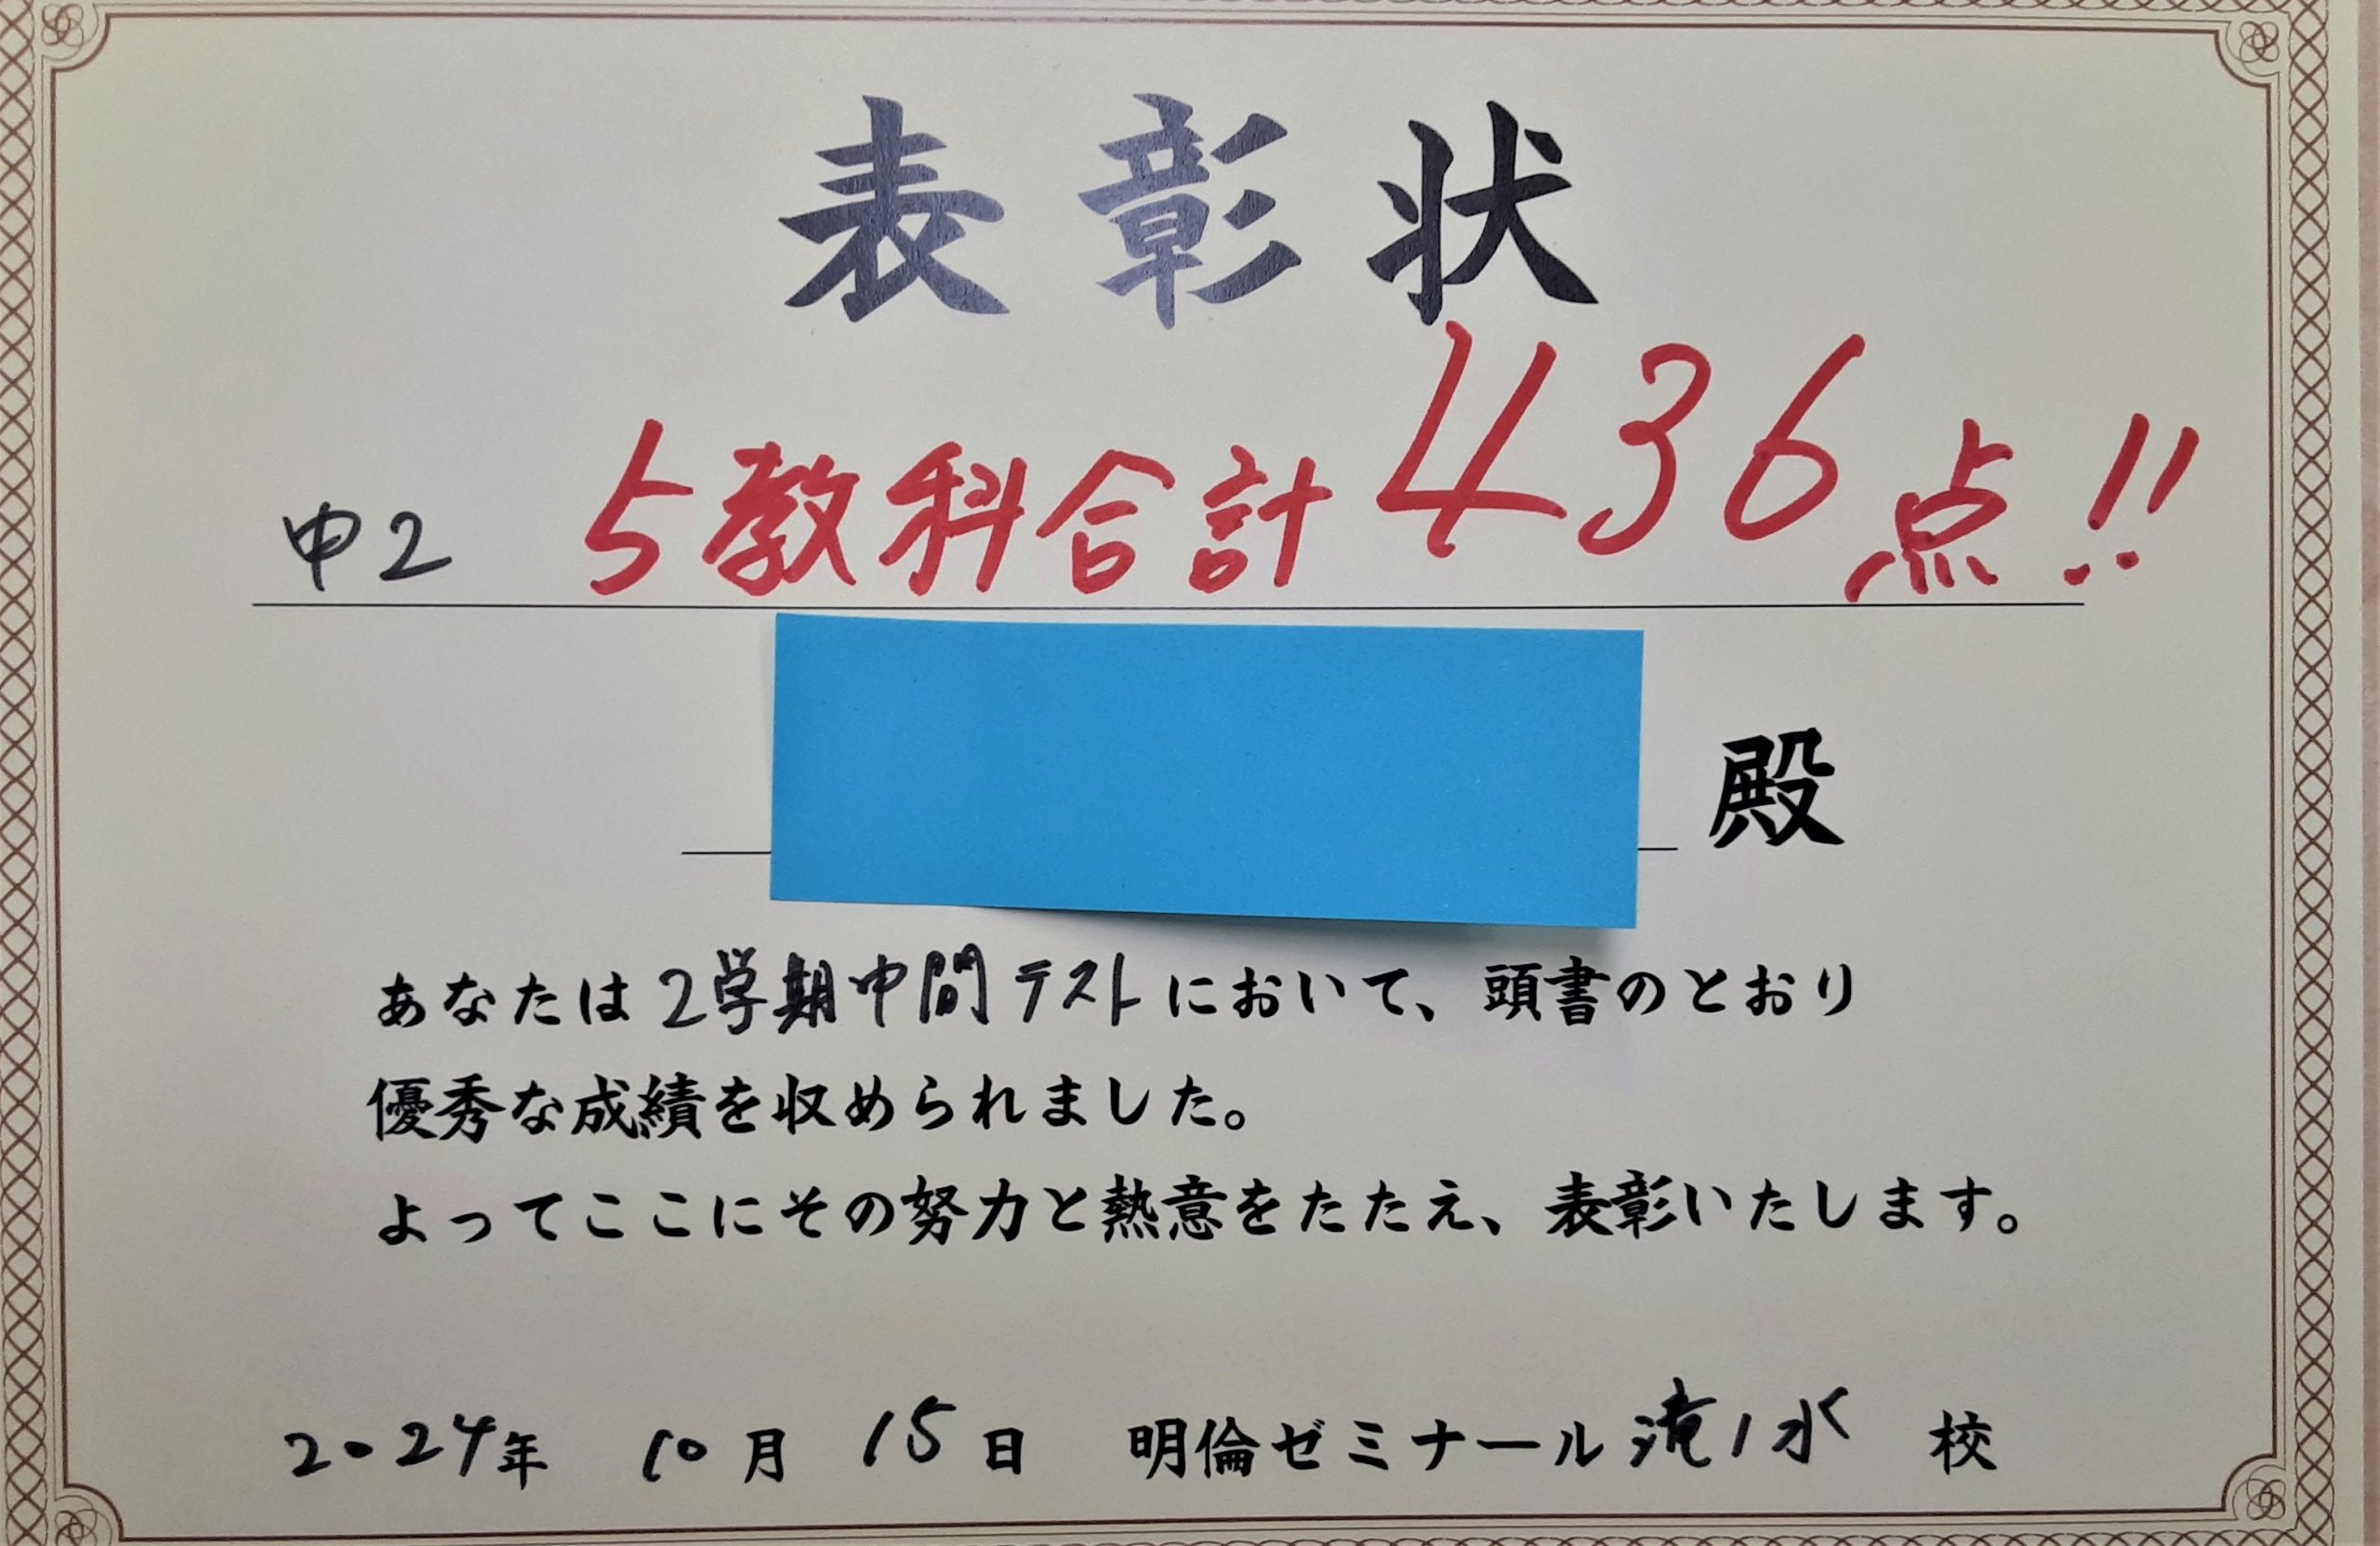 表彰状
中2 5教科合計436点!!
殿
あなたは2学期中間テストにおいて、頭書のとおり
優秀な成績を収められました。
よってここにその努力と熱意をたたえ、表彰いたします。
2024年 10月 15日 明倫ゼミナール滝ノ水 校